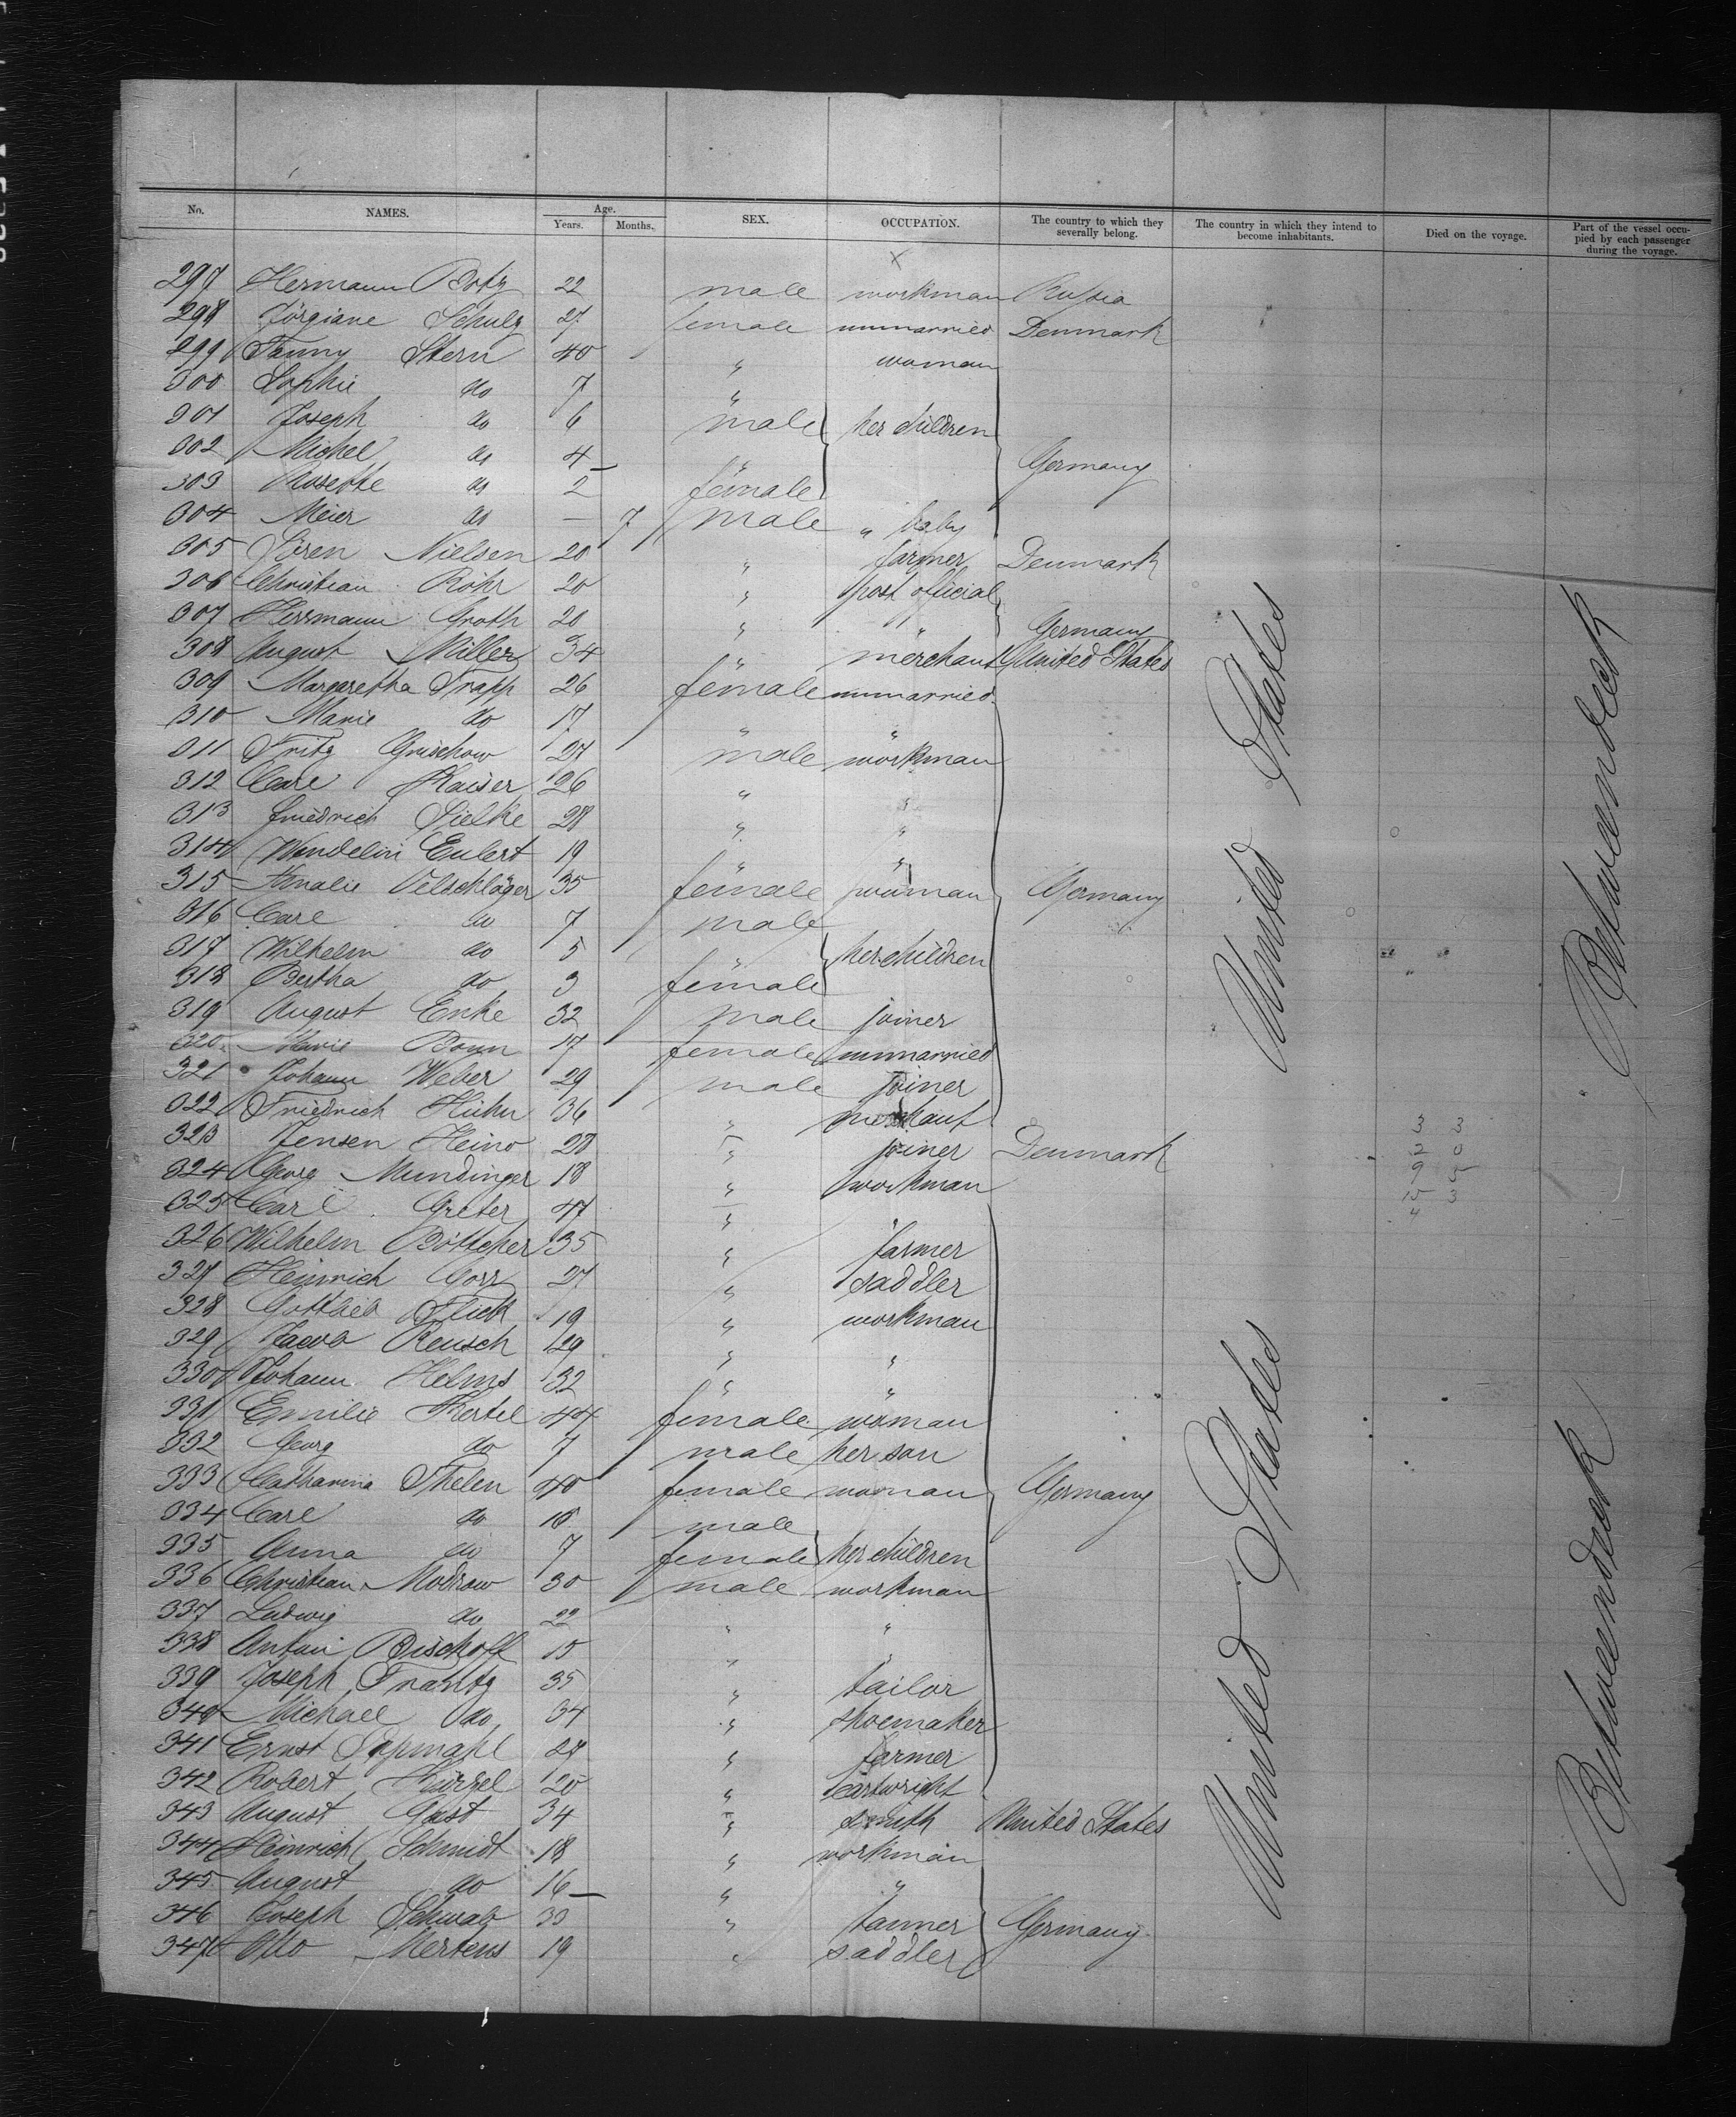 No. NAMES. Age. Years. Months. SEX. OCCUPATION. The country to which they severally belong. The country in which they intend to become inhabitants. Died on the voyage. Part of the vessel occupied by each passenger during the voyage.
297 Hermann Botz 22 male workman Russia
298 Jörgiane Schulz 27 female unmarried Denmark
299 Fanny Stern 40 " woman
300 Sophie do 7 "
301 Joseph do 6 male her children
302 Michel do 4 " Germany
303 Rosette do 2 female
304 Meier do — 7 male " baby
305 Sören Nielsen 20 " farmer Denmark
306 Christian Röhr 20 " post official
307 Herrmann Groth 20 " " Germany
308 August Miller 34 " merchant United States
309 Margaretha Trapp 26 female unmarried
310 Marie do 17 " "
311 Fritz Grischow 27 male workman
312 Carl Kaiser 26 " "
313 Friedrich Sielke 28 " "
314 Wendelin Eulert 19 " "
315 Amalie Oelschläger 35 female woman Germany
316 Carl do 7 male
317 Wilhelm do 5 " her children
318 Bertha do 3 female
319 August Enke 32 male joiner
320 Marie Bonn 17 female unmarried
321 Johann Weber 29 male joiner
322 Friedrich Huhn 36 " merchant
323 Jensen Heino 28 " joiner Denmark
324 Georg Mundinger 18 " workman
325 Carl Greter 47 " "
326 Wilhelm Böttcher 35 " farmer
327 Heinrich Gorr 27 " saddler
328 Gottlieb Flick 19 " workman
329 Jacob Reusch 29 " "
330 Johann Helms 32 " "
331 Emilie Hertel 44 female woman
332 Georg do 7 male her son
333 Catharina Thelen 40 female woman Germany
334 Carl do male
335 Anna do 7 female her children
336 Christian Modrow 30 male workman
337 Ludwig do 22 " "
338 Anton Bischoff 15 " "
339 Joseph Frantz 35 " tailor
340 Michael do 34 " shoemaker
341 Ernst 27 " farmer
342 Robert 20 " cartwright
343 August Gast 34 " smith United States
344 Heinrich Schmidt 18 " workman
345 August do 16 " "
346 Joseph Schwab 33 " tanner Germany
347 Otto Mertens 19 " saddler
United States
Betweendeck
3 3
2 0
9 5
15 3
4
United States
Betweendeck